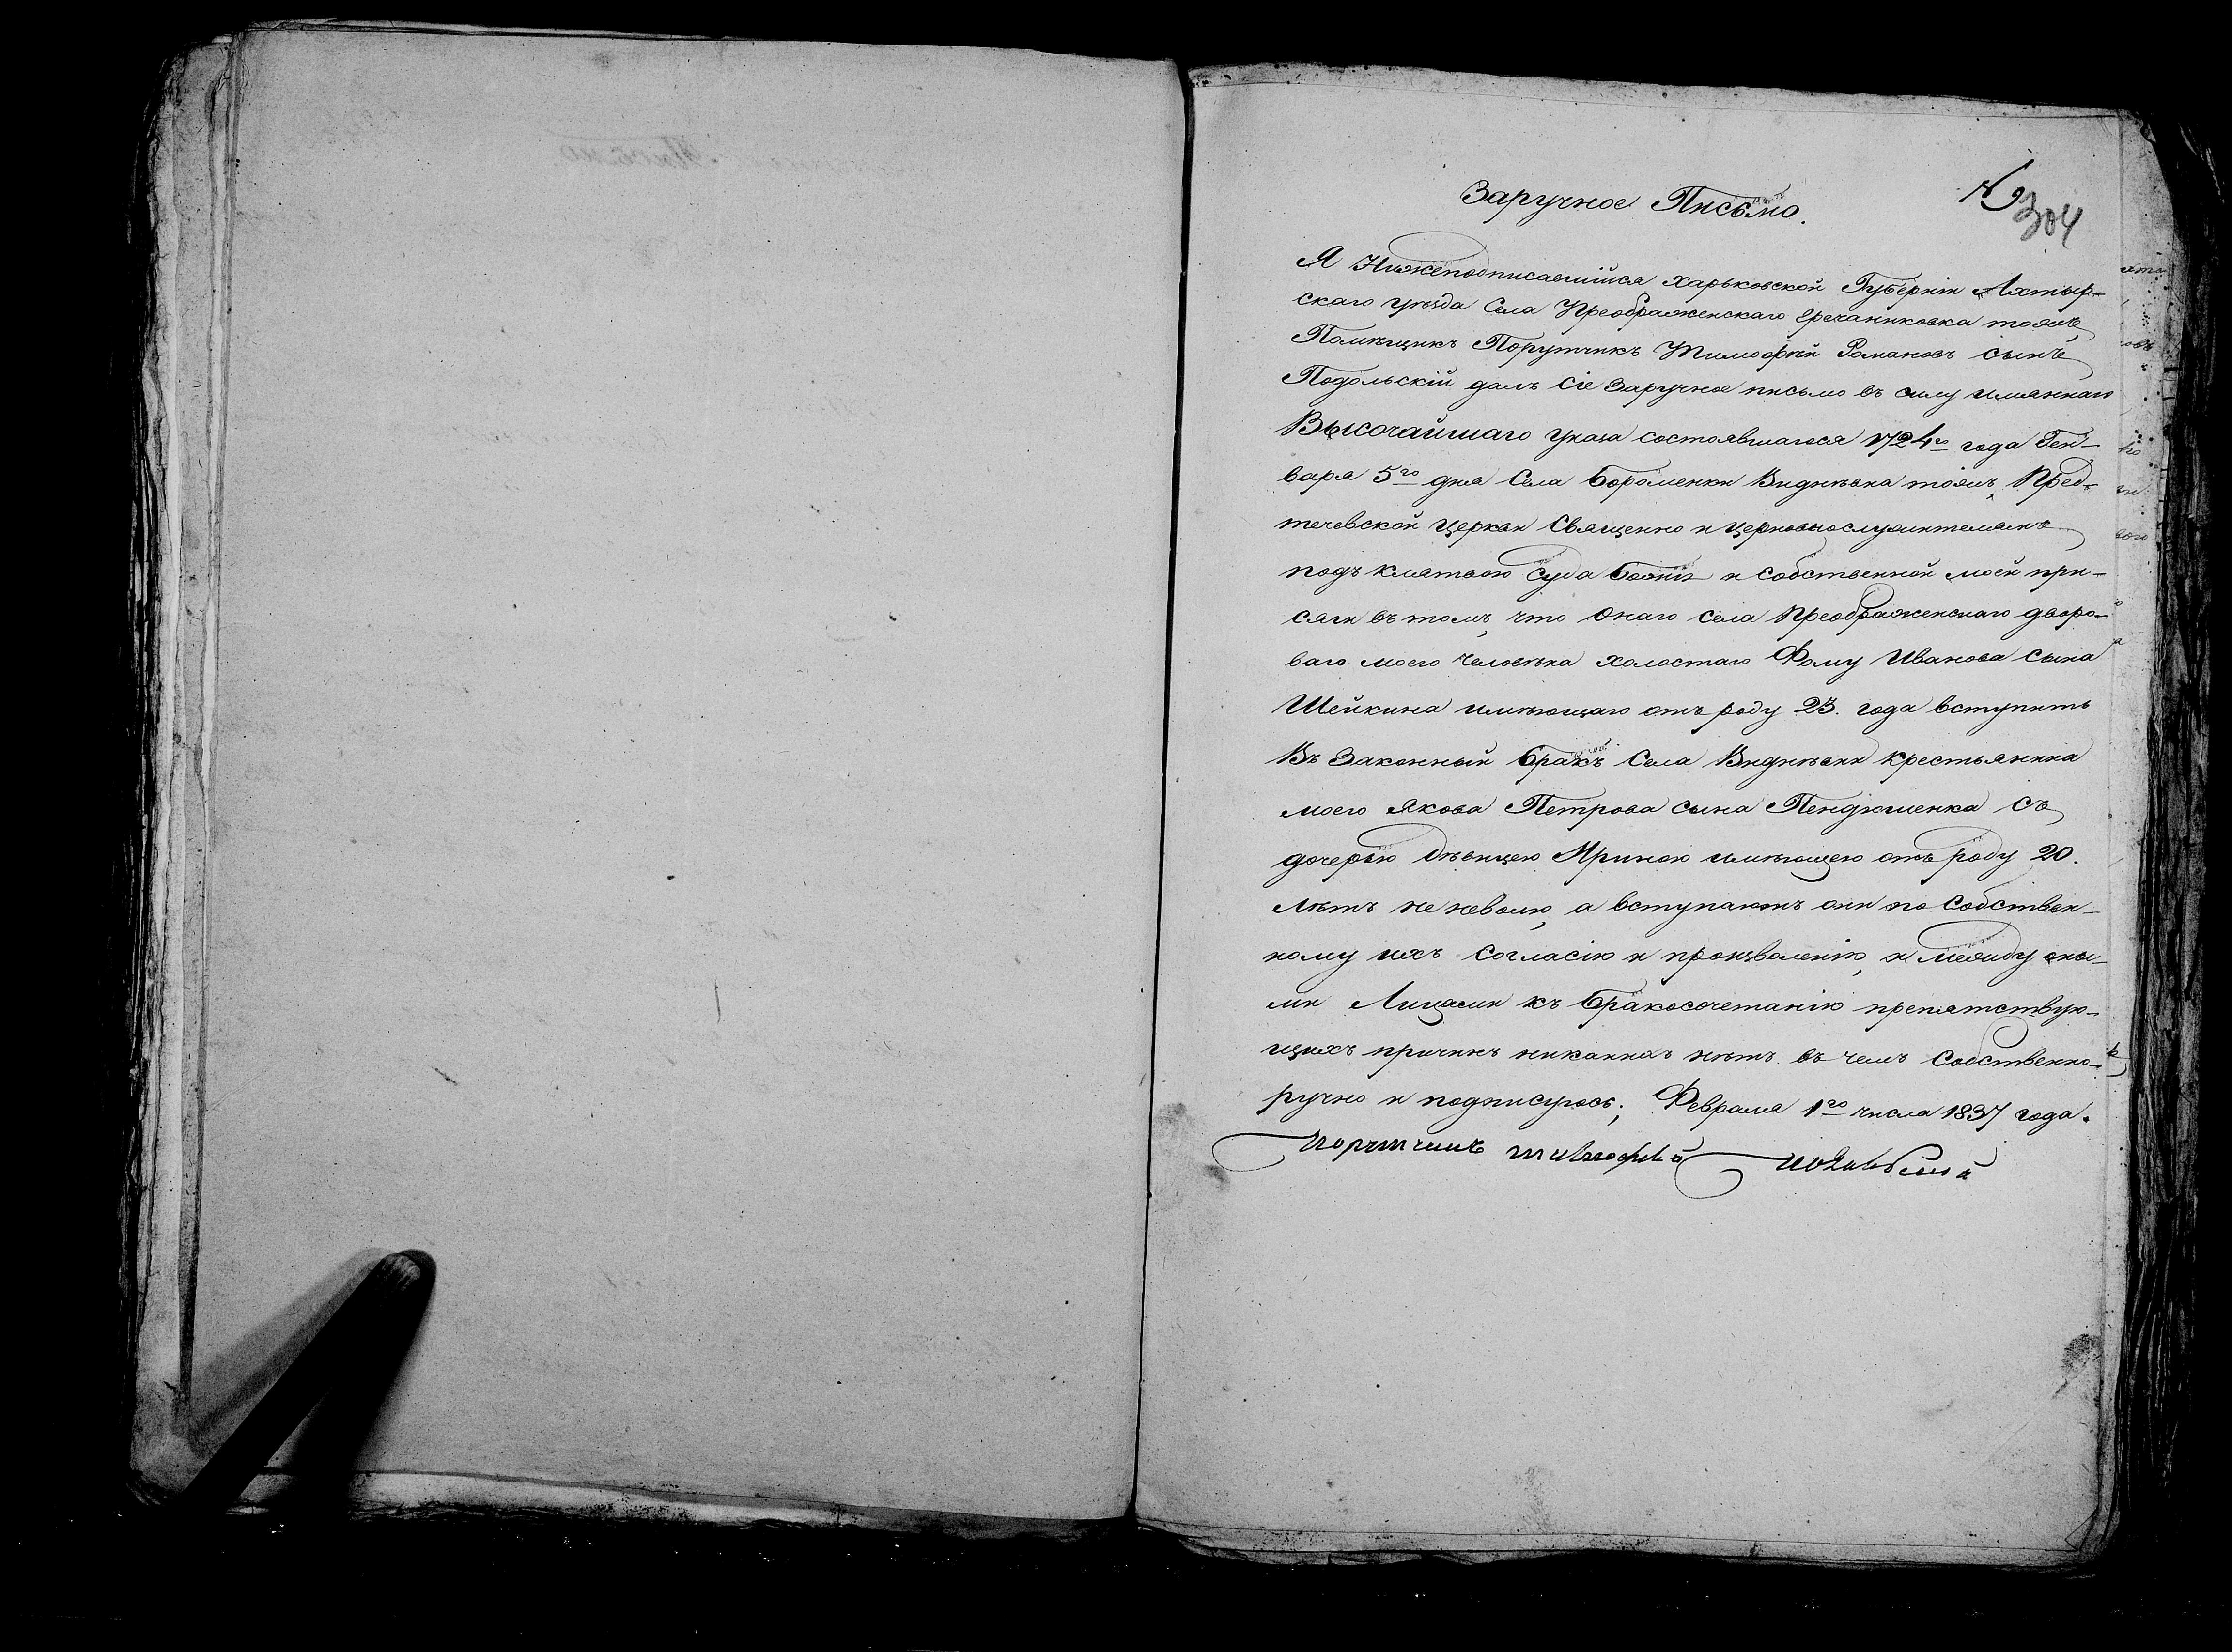 Заручное Письмо.
№ 9
304
Я Нижеподписавшійся Харьковской Губерніи Ахтыр-
скаго уѣзда Села Преображенскаго Гречаниковка тожъ
Помѣщикъ Порутчикъ Тимофѣй Романовъ сынъ
Подольскій далъ сіе Заручное письмо въ силу имяннаго
Высочайшаго указа состоявшагося 1724го года Ген-
варя 5го дня Села Бороменки Видневка тожъ, Пред-
течевской Церкви Священно и церковнослужителямъ
подъ клятвою Суда Божія и собственной моей при-
сяги въ томъ, что онаго села Преображенскаго дворо-
ваго моего человѣка холостаго Фому Иванова сына
Шейкина имѣющаго отъ роду 23. года вступить
Въ Законный бракъ Села Виднѣвки крестьянина
моего Якова Петрова сына съ
дочерью дѣвицею Ириною имѣющею отъ роду 20.
лѣтъ не неволю, а вступаютъ они по собствен-
ному ихъ согласію и произволенію, и между оны-
ми Лицами къ бракосочетанію препятствую-
щихъ причинъ никакихъ нѣтъ въ чемъ собственно-
ручно и подписуюсь; Февраля 1го числа 1837 года.
Порутчикъ Тимофей Подольский